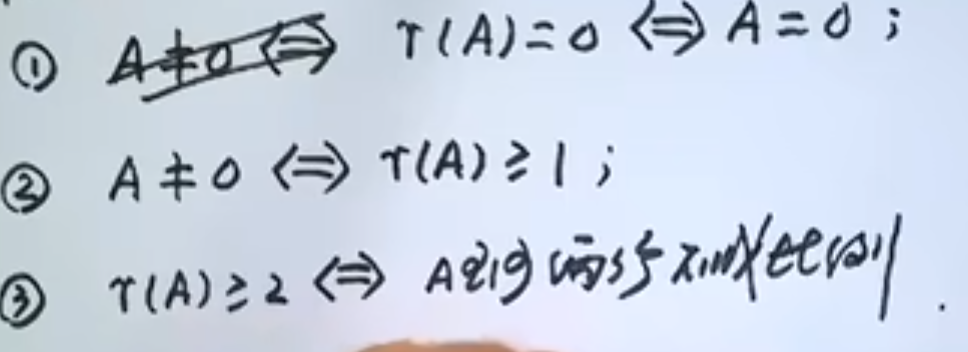 ① A≠0⇔ r(A)=0 ⇔ A=0;
② A≠0 ⇔ r(A)≥1;
③ r(A)≥2 ⇔ A至少两行不成比例.